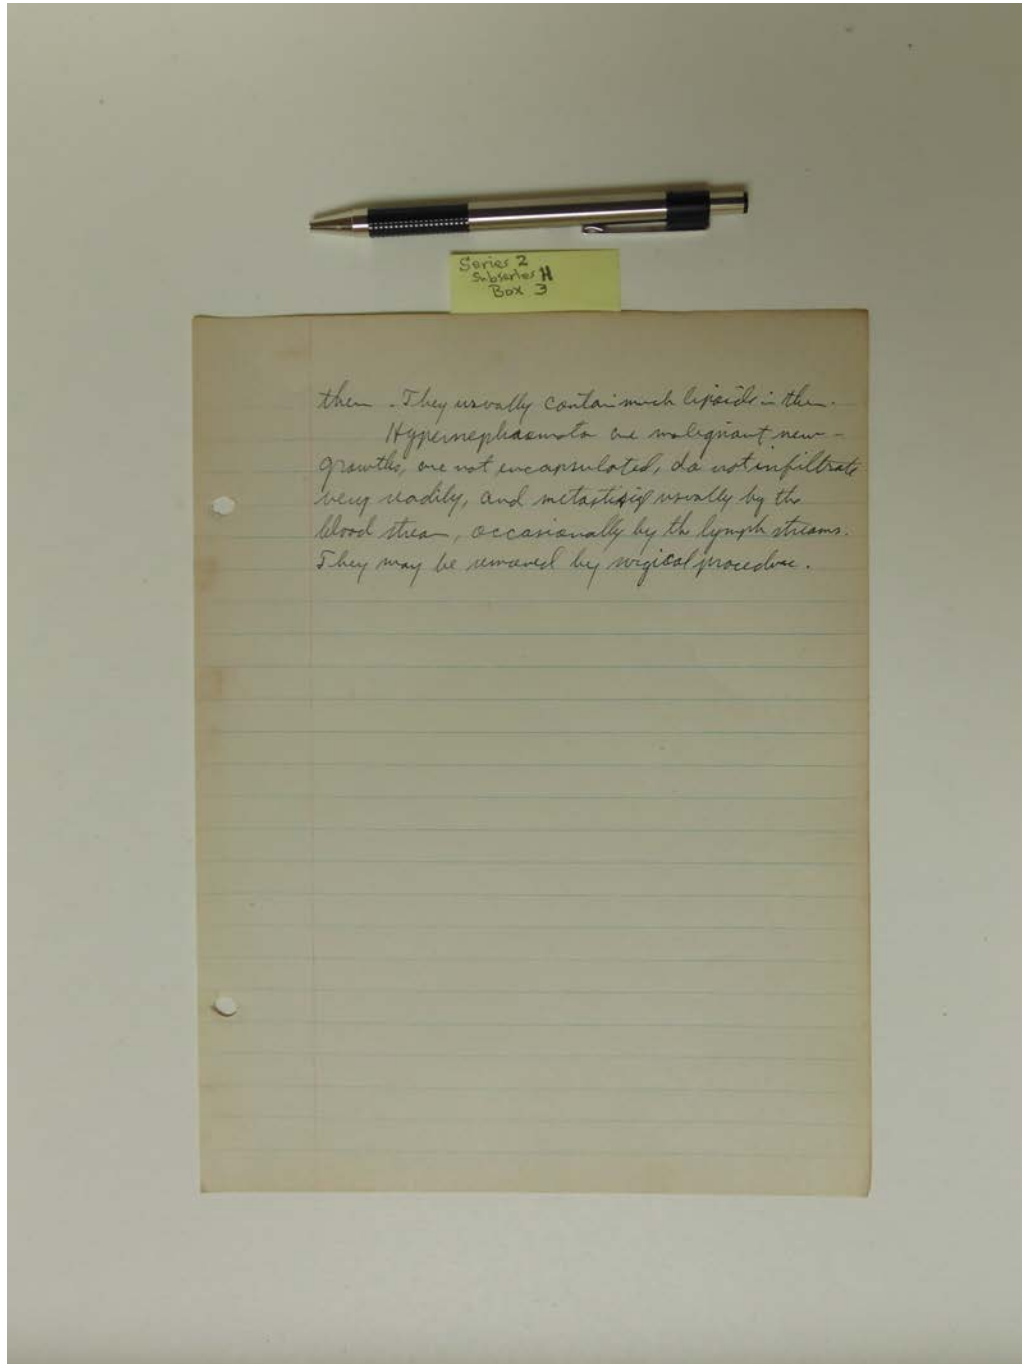 Series 2
Subseries H
Box 3
them. They usually contain much lipoids in them.
Hypernephromata are malignant new-
growths, are not encapsulated, do not infiltrate
very readily, and metastisize usually by the
blood stream, occasionally by the lymph streams.
They may be removed by surgical procedure.